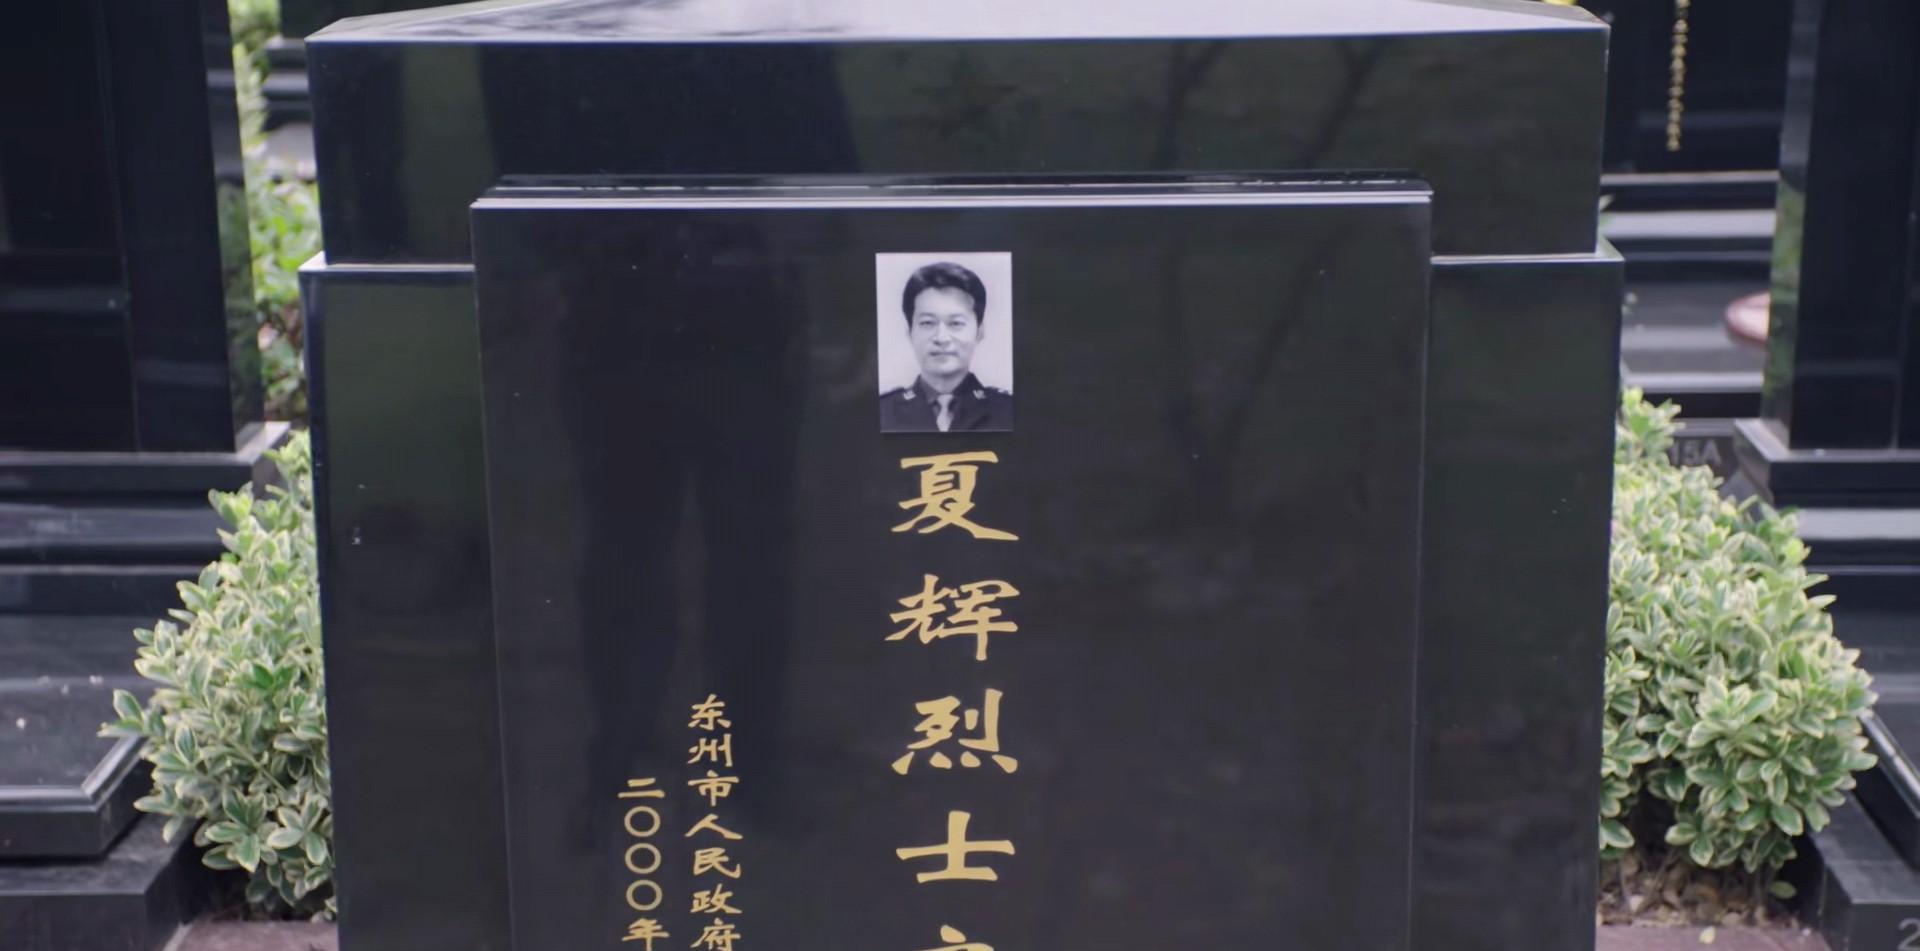 夏辉烈士
东州市人民政府
二〇〇〇年
15A
2